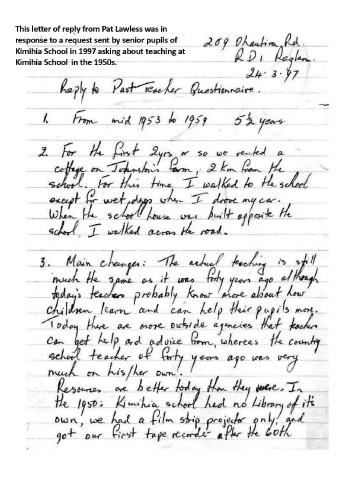 This letter of reply from Pat Lawless was in
response to a request sent by senior pupils of
Kimihia School in 1997 asking about teaching at
Kimihia School in the 1950s.
209 Ohautira Rd.
RD1 Raglan.
24.3.97
Reply to Past Teacher Questionnaire.
1. From mid 1953 to 1959 5½ years.
2. For the first 2yrs or so we rented a
cottage on Johnston's farm, 2 km from the
school. For this time, I walked to the school
except for wet days when I drove my car.
When the school house was built opposite the
school, I walked across the road.
3. Main changes: The actual teaching is still
much the same as it was forty years ago although
today's teachers probably know more about how
children learn and can help their pupils more.
Today there are more outside agencies that teachers
can get help and advice from, whereas the country
school teacher of forty years ago was very
much on his/her own.
Resources are better today than they were. In
the 1950s Kimihia school had no Library of its
own, we had a film strip projector only, and
got our first tape recorder after the 60th